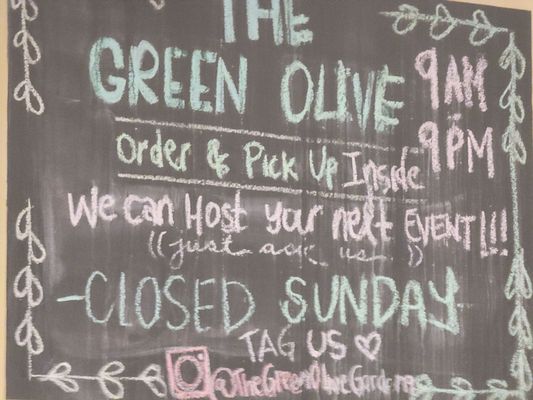 THE
GREEN OLIVE
9AM
9PM
Order & Pick Up Inside
We can Host your next EVENT!!!
((just ask us))
-CLOSED SUNDAY-
TAG US ♡
@TheGreenOliveGardena